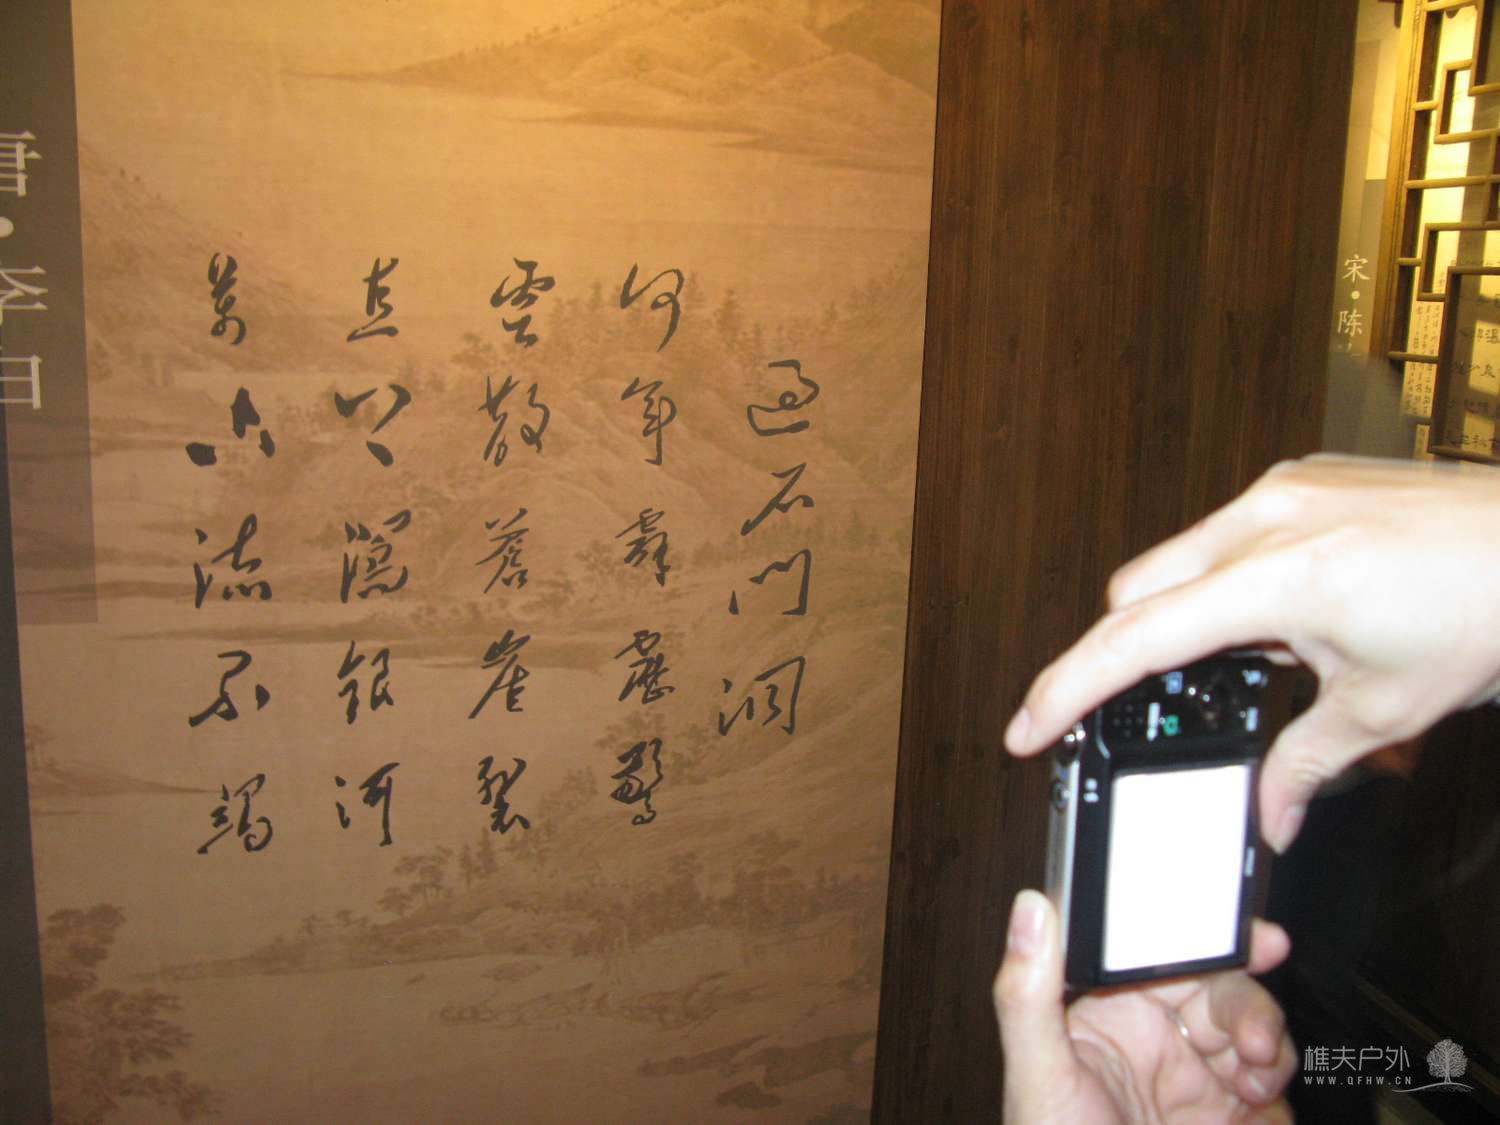 過石門洞
何年霹靂驚
雲散蒼崖裂
直上瀉銀河
萬古流不竭
唐·李白
宋·陈
樵夫户外
WWW.QFHW.CN